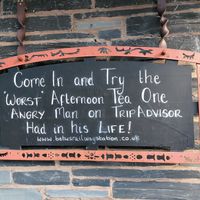 Come In and Try the
"Worst" Afternoon Tea One
Angry Man on TripAdvisor
Had in his LIFE!
www.betwsrailwaystation.co.uk